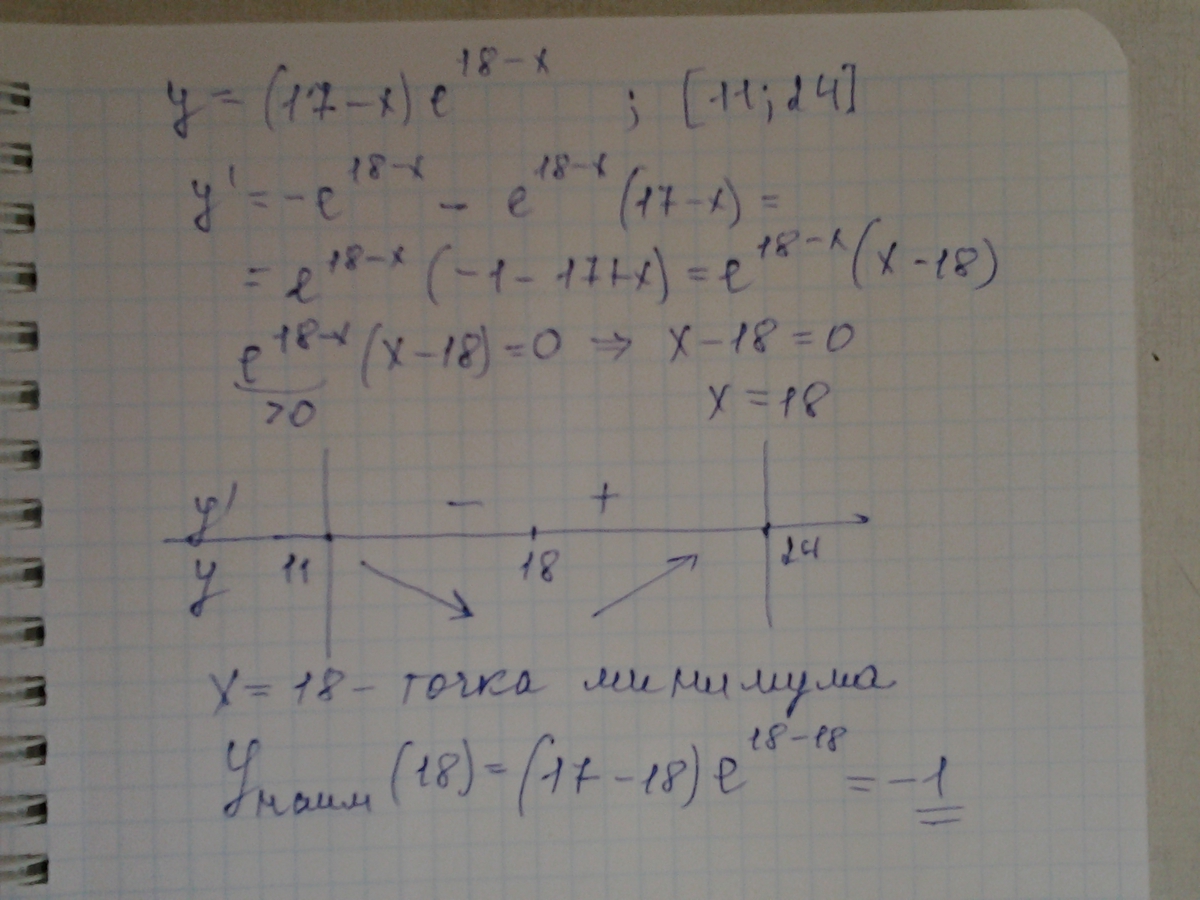 y = (17-x)e^{18-x} ; [11;24]
y' = -e^{18-x} - e^{18-x}(17-x) =
= e^{18-x}(-1-17+x) = e^{18-x}(x-18)
e^{18-x}(x-18)=0 ⇒ x-18=0
>0 x=18
y' - +
y 11 18 24
x=18- точка минимума
y_{наим}(18)=(17-18)e^{18-18}=-1